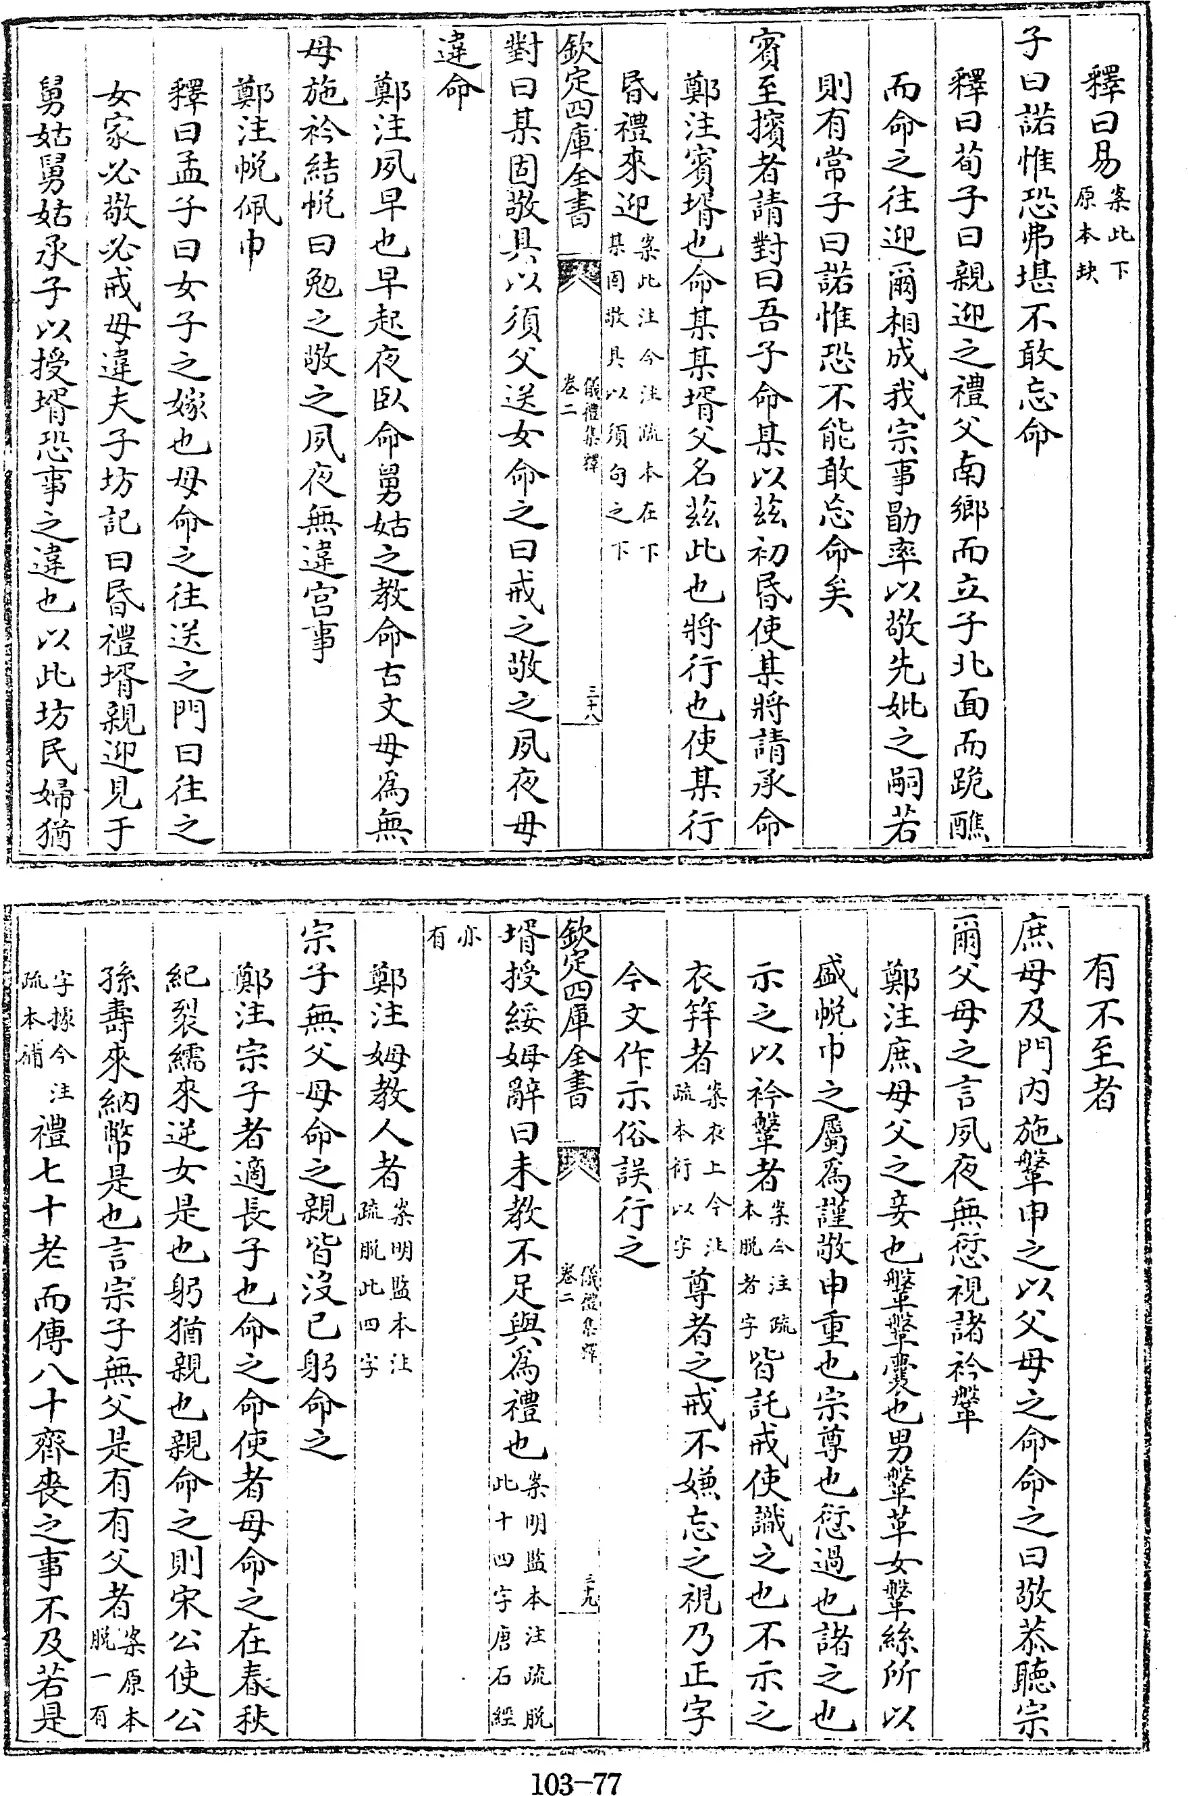 釋曰易案此下原本缺
子曰諾惟恐弗堪不敢忘命
釋曰荀子曰親迎之禮父南鄉而立子北面而跪醮
而命之往迎爾相成我宗事勗率以敬先妣之嗣若
則有常子曰諾惟恐不能敢忘命矣
賓至擯者請對曰吾子命某以兹初昏使某將請承命
鄭注賓壻也命某某壻父名兹此也將行也使某行
昏禮來迎案此注今注疏本在下某固敬具以須句之下
欽定四庫全書
儀禮集釋
卷二
三十八
對曰某固敬具以須父送女命之曰戒之敬之夙夜毋
違命
鄭注夙早也早起夜臥命舅姑之教命古文毋爲無
母施衿結帨曰勉之敬之夙夜無違宮事
鄭注帨佩巾
釋曰孟子曰女子之嫁也母命之往送之門曰往之
女家必敬必戒毋違夫子坊記曰昏禮壻親迎見于
舅姑舅姑承子以授壻恐事之違也以此坊民婦猶
有不至者
庶母及門内施鞶申之以父母之命命之曰敬恭聽宗
爾父母之言夙夜無愆視諸衿鞶
鄭注庶母父之妾也鞶鞶囊也男鞶革女鞶絲所以
盛帨巾之屬爲謹敬申重也宗尊也愆過也諸之也
示之以衿鞶者案今注疏本脱者字皆託戒使識之也不示之
衣笄者案衣上今注疏本衍以字尊者之戒不嫌忘之視乃正字
今文作示俗誤行之
欽定四庫全書
儀禮集釋
卷二
三十九
壻授綏姆辭曰未教不足與爲禮也案明監本注疏脱此十四字唐石經
亦有
鄭注姆教人者案明監本注疏脱此四字
宗子無父母命之親皆沒已躬命之
鄭注宗子者適長子也命之命使者母命之在春秋
紀裂繻來逆女是也躬猶親也親命之則宋公使公
孫壽來納幣是也言宗子無父是有有父者案原本脱一有
字據今注疏本補禮七十老而傳八十齊喪之事不及若是
103-77